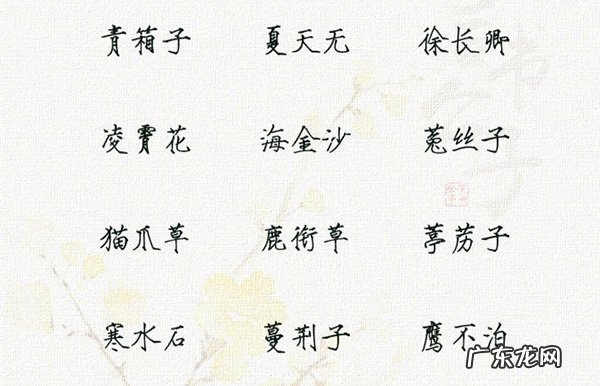 青箱子 夏天无 徐长卿
凌霄花 海金沙 菟丝子
猫爪草 鹿衔草 葶苈子
寒水石 蔓荆子 鹰不泊
广东龙网